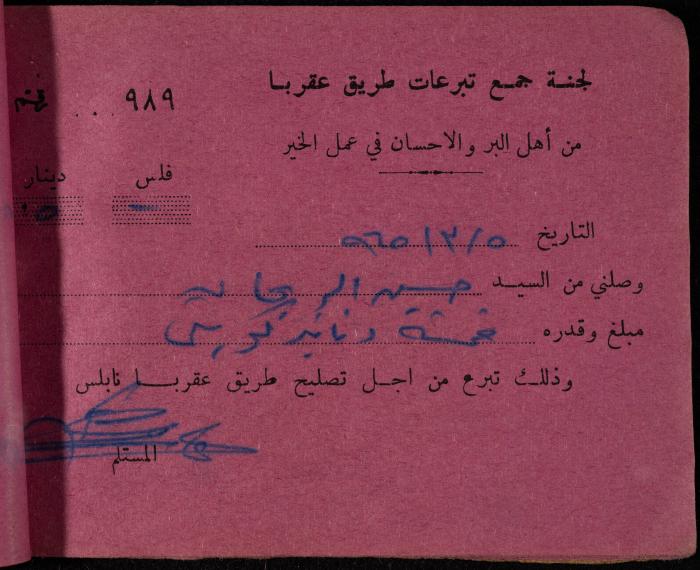 لجنة جمع تبرعات طريق عقربا
رقم ... ٩٨٩
من أهل البر والاحسان في عمل الخير
فلس دينار
التاريخ ٥ / ٣ / ٩٦٥
وصلني من السيد حسين
مبلغ وقدره خمسة دنانير
وذلك تبرع من اجل تصليح طريق عقربا نابلس
المستلم